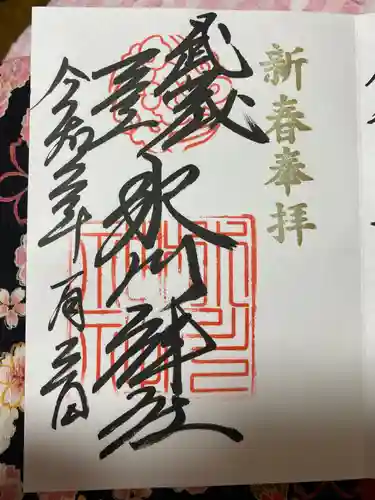 新春奉拝
武蔵
氷川神社
令和六年一月三日